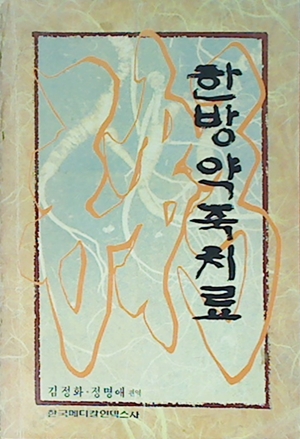 한방약죽치료
김정화·정명애 편역
한국메디칼인덱스사